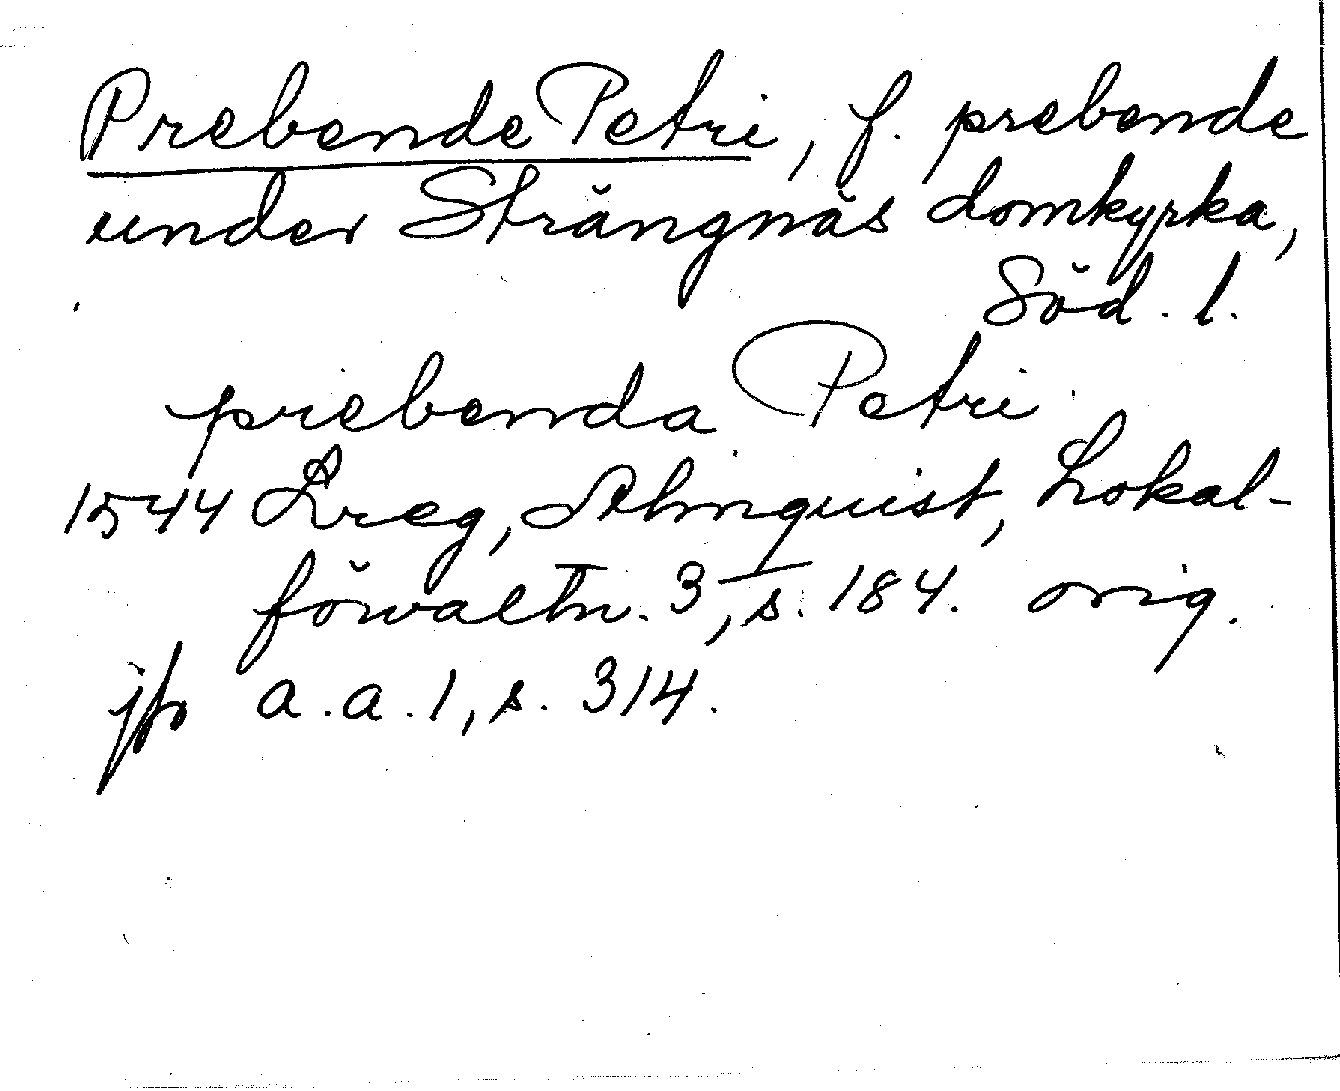 Prebende Petri, f. prebende
under Strängnäs domkyrka,
Söd. l.
prebenda Petri
1544 Lreg, Almquist, Lokal-
förvaltn. 3, s. 184. orig.
jfr a.a. 1, s. 314.